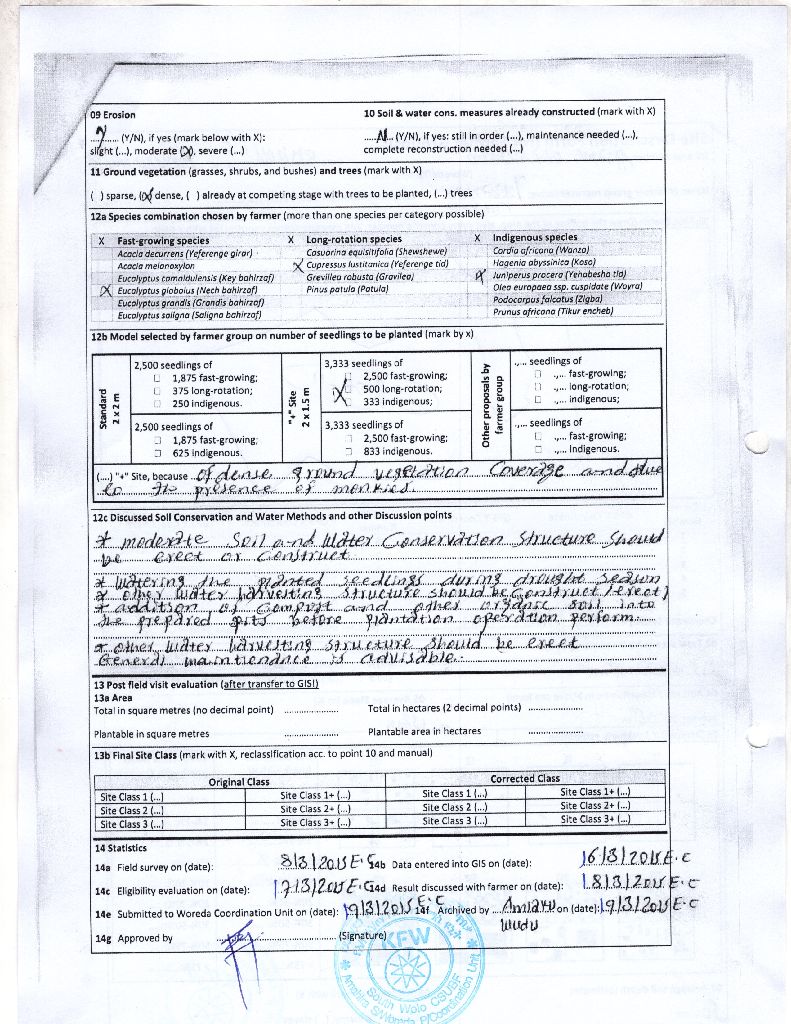 09 Erosion 10 Soil & water cons. measures already constructed (mark with X)
Y (Y/N), if yes (mark below with X): .....N... (Y/N), if yes: still in order (...), maintenance needed (...),
slight (...), moderate (X), severe (...) complete reconstruction needed (...)
11 Ground vegetation (grasses, shrubs, and bushes) and trees (mark with X)
( ) sparse, (X) dense, ( ) already at competing stage with trees to be planted, (...) trees
12a Species combination chosen by farmer (more than one species per category possible)
X Fast-growing species X Long-rotation species X Indigenous species
Acacia decurrens (Yeferenge girar) Casuarina equisitifolia (Shewshewe) Cordia africana (Wanza)
Acacia melanoxylon X Cupressus lustitanica (Yeferenge tid) Hagenia abyssinica (Koso)
Eucalyptus camaldulensis (Key bahirzaf) Grevillea robusta (Gravilea) X Juniperus procera (Yehabesha tid)
X Eucalyptus globolus (Nech bahirzaf) Pinus patula (Patula) Olea europaea ssp. cuspidate (Woyra)
Eucalyptus grandis (Grandis bahirzaf) Podocarpus falcatus (Zigba)
Eucalyptus saligna (Saligna bahirzaf) Prunus africana (Tikur encheb)
12b Model selected by farmer group on number of seedlings to be planted (mark by x)
Standard
2 x 2 m
2,500 seedlings of
☐ 1,875 fast-growing;
☐ 375 long-rotation;
☐ 250 indigenous.
2,500 seedlings of
☐ 1,875 fast-growing;
☐ 625 indigenous.
"+" Site
2 x 1.5 m
3,333 seedlings of
☐ 2,500 fast-growing;
X 500 long-rotation;
☐ 333 indigenous;
3,333 seedlings of
☐ 2,500 fast-growing;
☐ 833 indigenous.
Other proposals by
farmer group
.,... seedlings of
☐ .,... fast-growing;
☐ .,... long-rotation;
☐ .,... indigenous;
.,... seedlings of
☐ .,... fast-growing;
☐ .,... Indigenous.
(....) "+" Site, because of dense ground vegetation Coverage and due
to the presence of monkies.
12c Discussed Soil Conservation and Water Methods and other Discussion points
* moderate Soil and Water Conservation Structure should
be erect or Construct
* Watering the planted seedlings during drought season
* other water harvesting structure should be construct (erect)
* addition of compost and other organic soil into
the prepared pits before plantation operation perform.
* other water harvesting structure should be erect
General maintiendnce is advisable.
13 Post field visit evaluation (after transfer to GIS!)
13a Area
Total in square metres (no decimal point) .................. Total in hectares (2 decimal points) ..................
Plantable in square metres .................. Plantable area in hectares ..................
13b Final Site Class (mark with X, reclassification acc. to point 10 and manual)
Original Class Corrected Class
Site Class 1 (...) Site Class 1+ (...) Site Class 1 (...) Site Class 1+ (...)
Site Class 2 (...) Site Class 2+ (...) Site Class 2 (...) Site Class 2+ (...)
Site Class 3 (...) Site Class 3+ (...) Site Class 3 (...) Site Class 3+ (...)
14 Statistics
14a Field survey on (date): 8/3/2015 E.C 14b Data entered into GIS on (date): 16/3/2015 E.C
14c Eligibility evaluation on (date): 17/3/2015 E.C 14d Result discussed with farmer on (date): 18/3/2015 E.C
14e Submitted to Woreda Coordination Unit on (date): 19/3/2015 E.C 14f Archived by ....Amlaku on (date): 19/3/2015 E.C
Wudu
14g Approved by (Signature)
KFW
South Wolo CBUBF